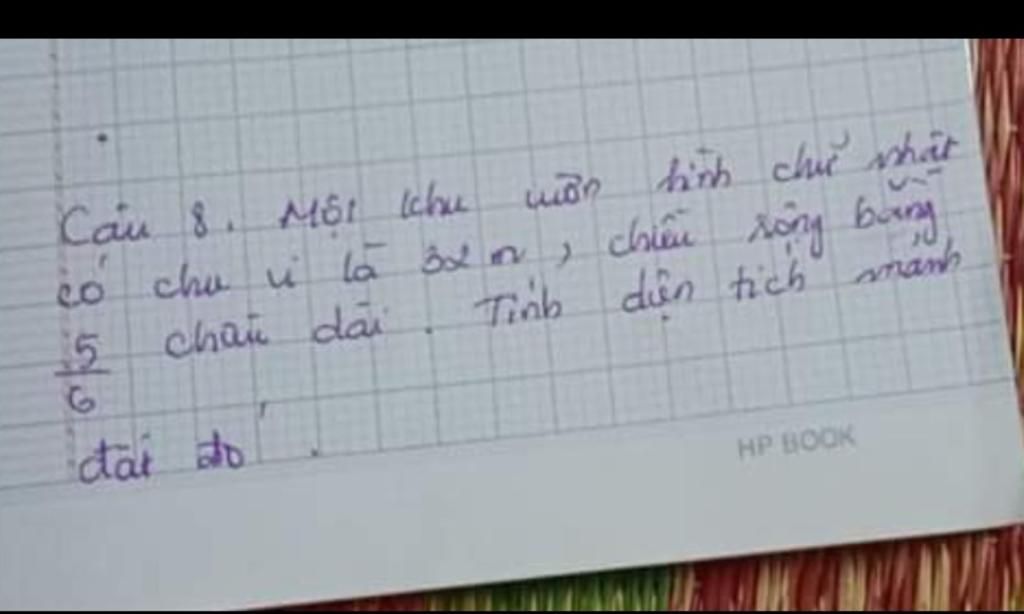 Câu 8. Một khu vườn hình chữ nhật
có chu vi là 32 m, chiều rộng bằng
5/6 chiều dài. Tính diện tích mảnh
đất đó.
HP BOOK